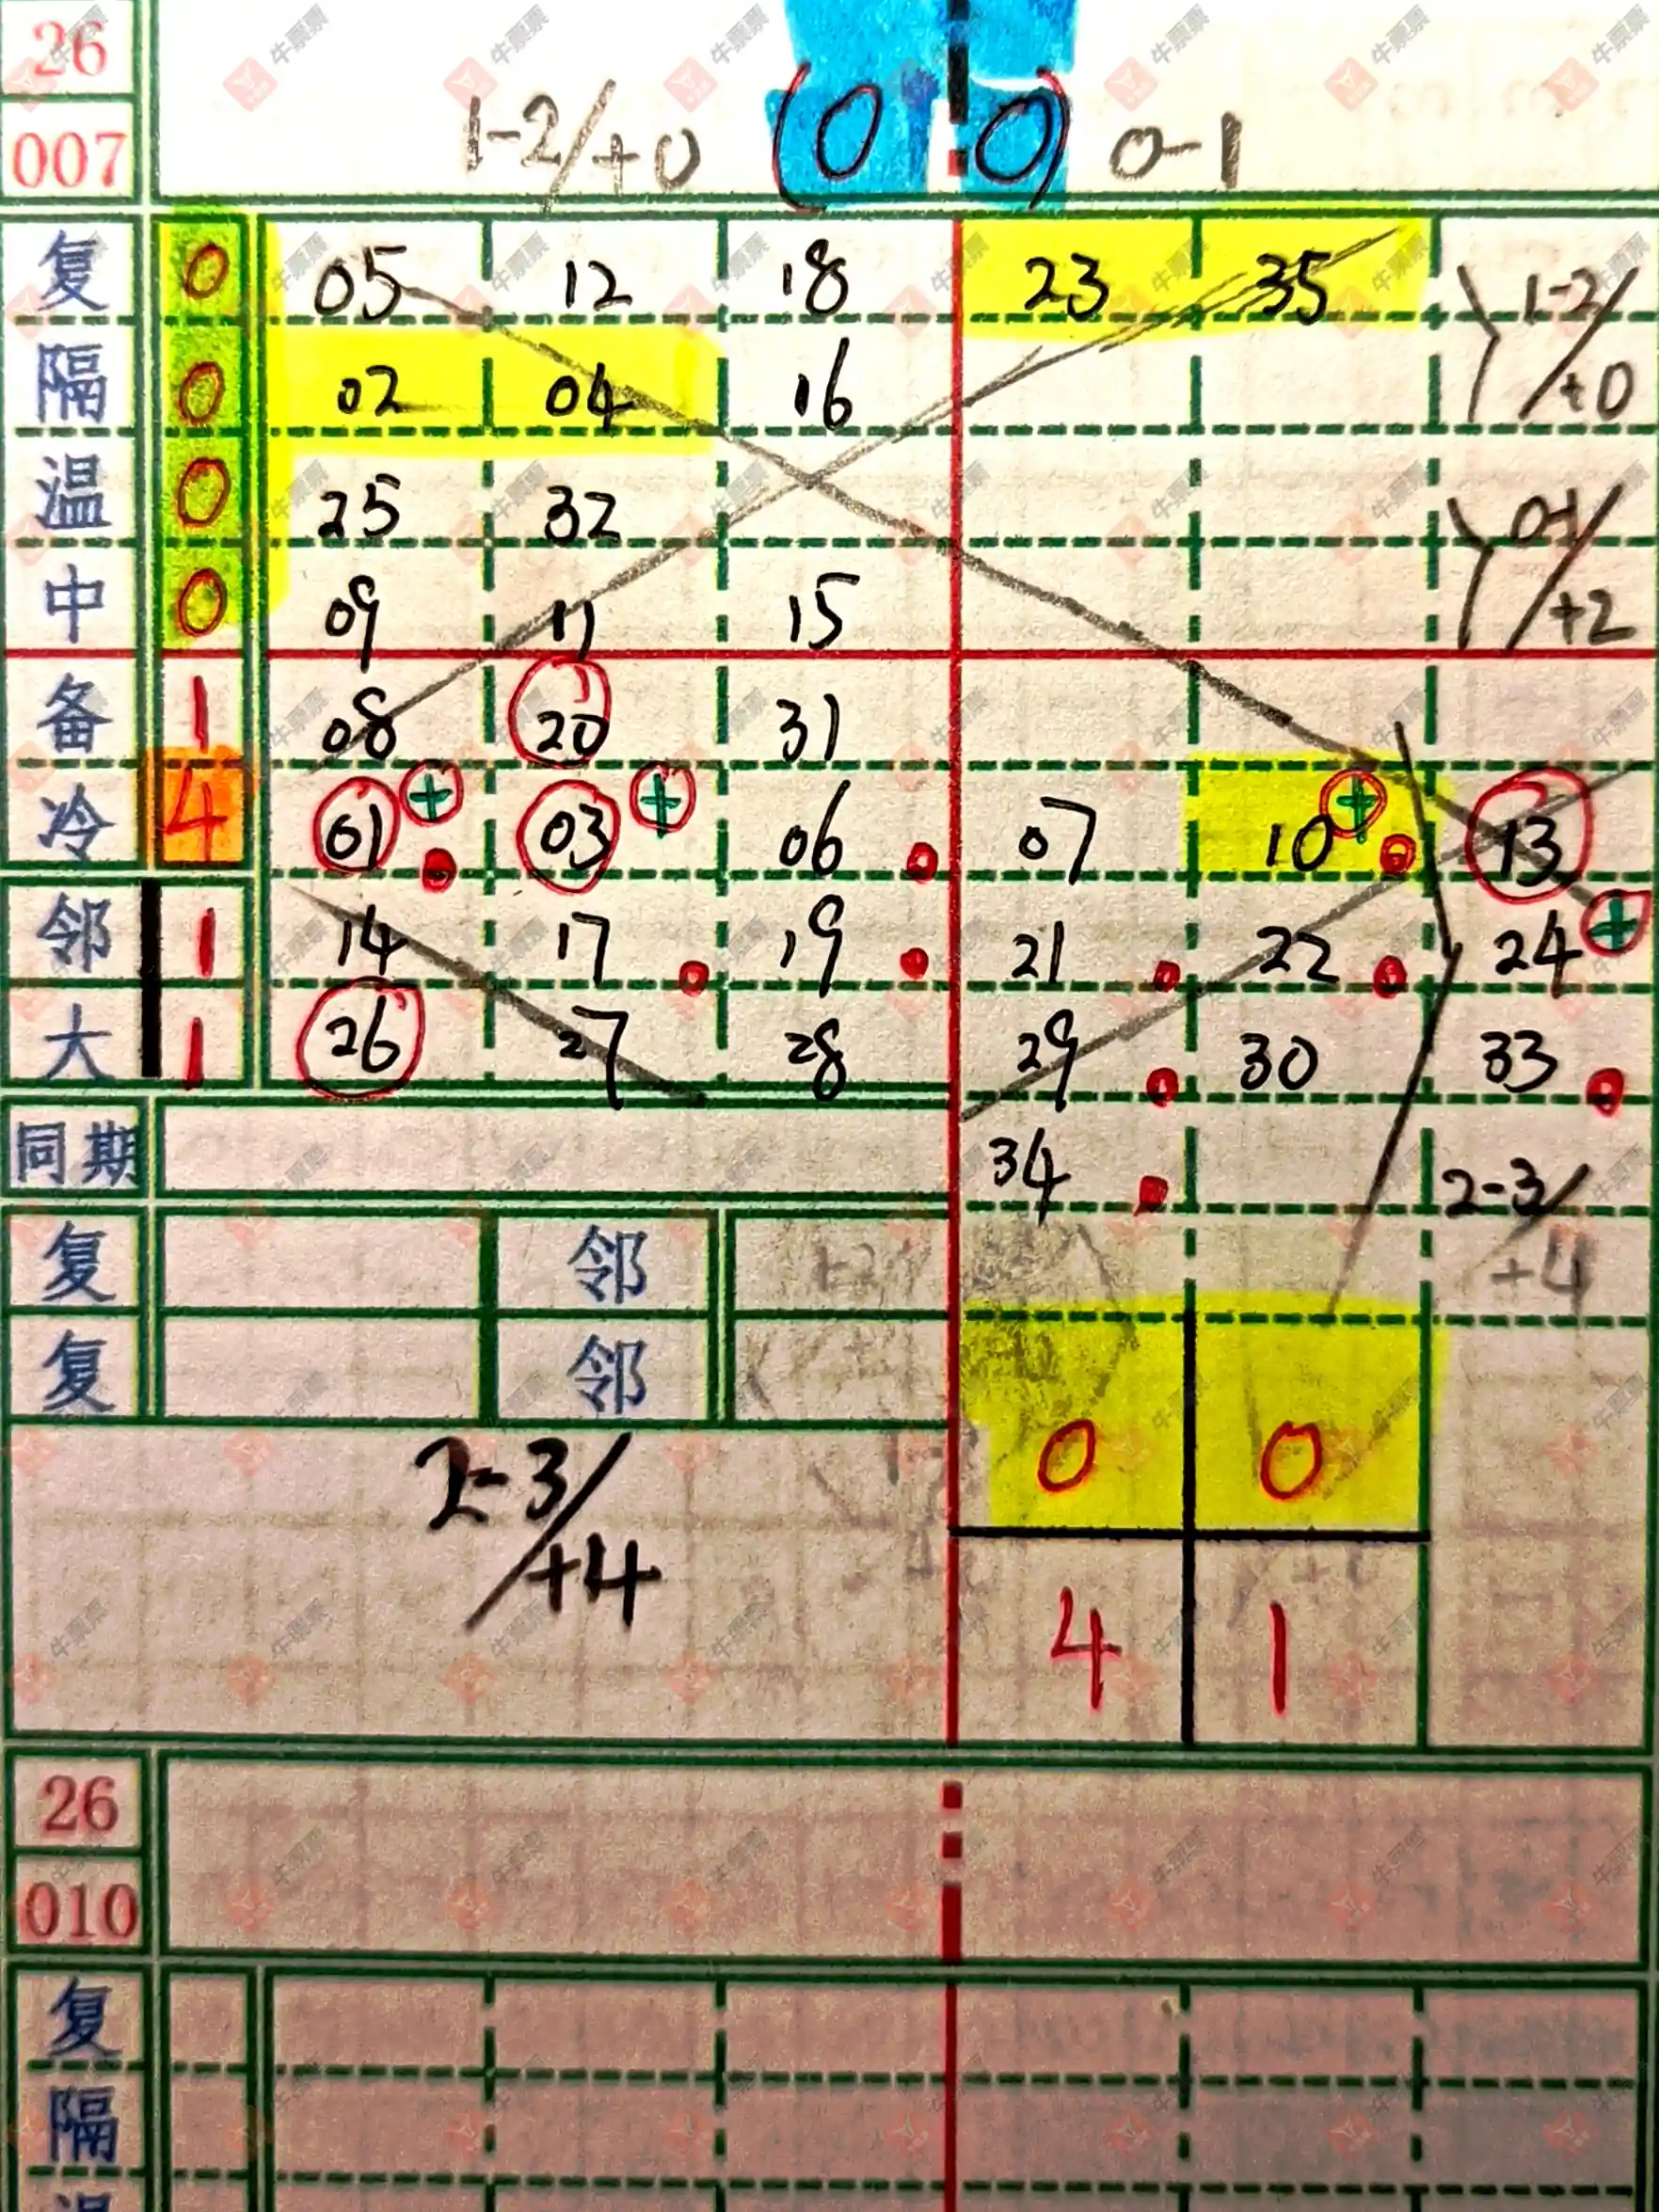 26
007 1-2/+0 (0 0) 0-1
复 0 05 12 18 23 35 1-2/+0
隔 0 02 04 16
温 0 25 32 0-1/+2
中 0 09 11 15
备 1 08 20 31
冷 4 01 + 03 + 06 07 10 + 13 +
邻 1 14 17 19 21 22 24
大 1 26 27 28 29 30 33
同期 34 2-3/+4
复 邻
复 邻
2-3/+4 0 0
4 1
26
010
复
隔
温
牛票票